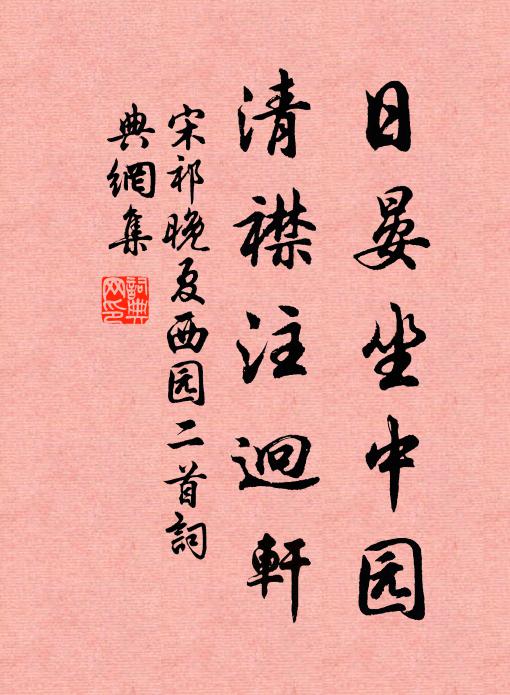 日晏坐中园
清襟注迥軒
宋祁晚夏西园二首詞
典網集
詞典
网印